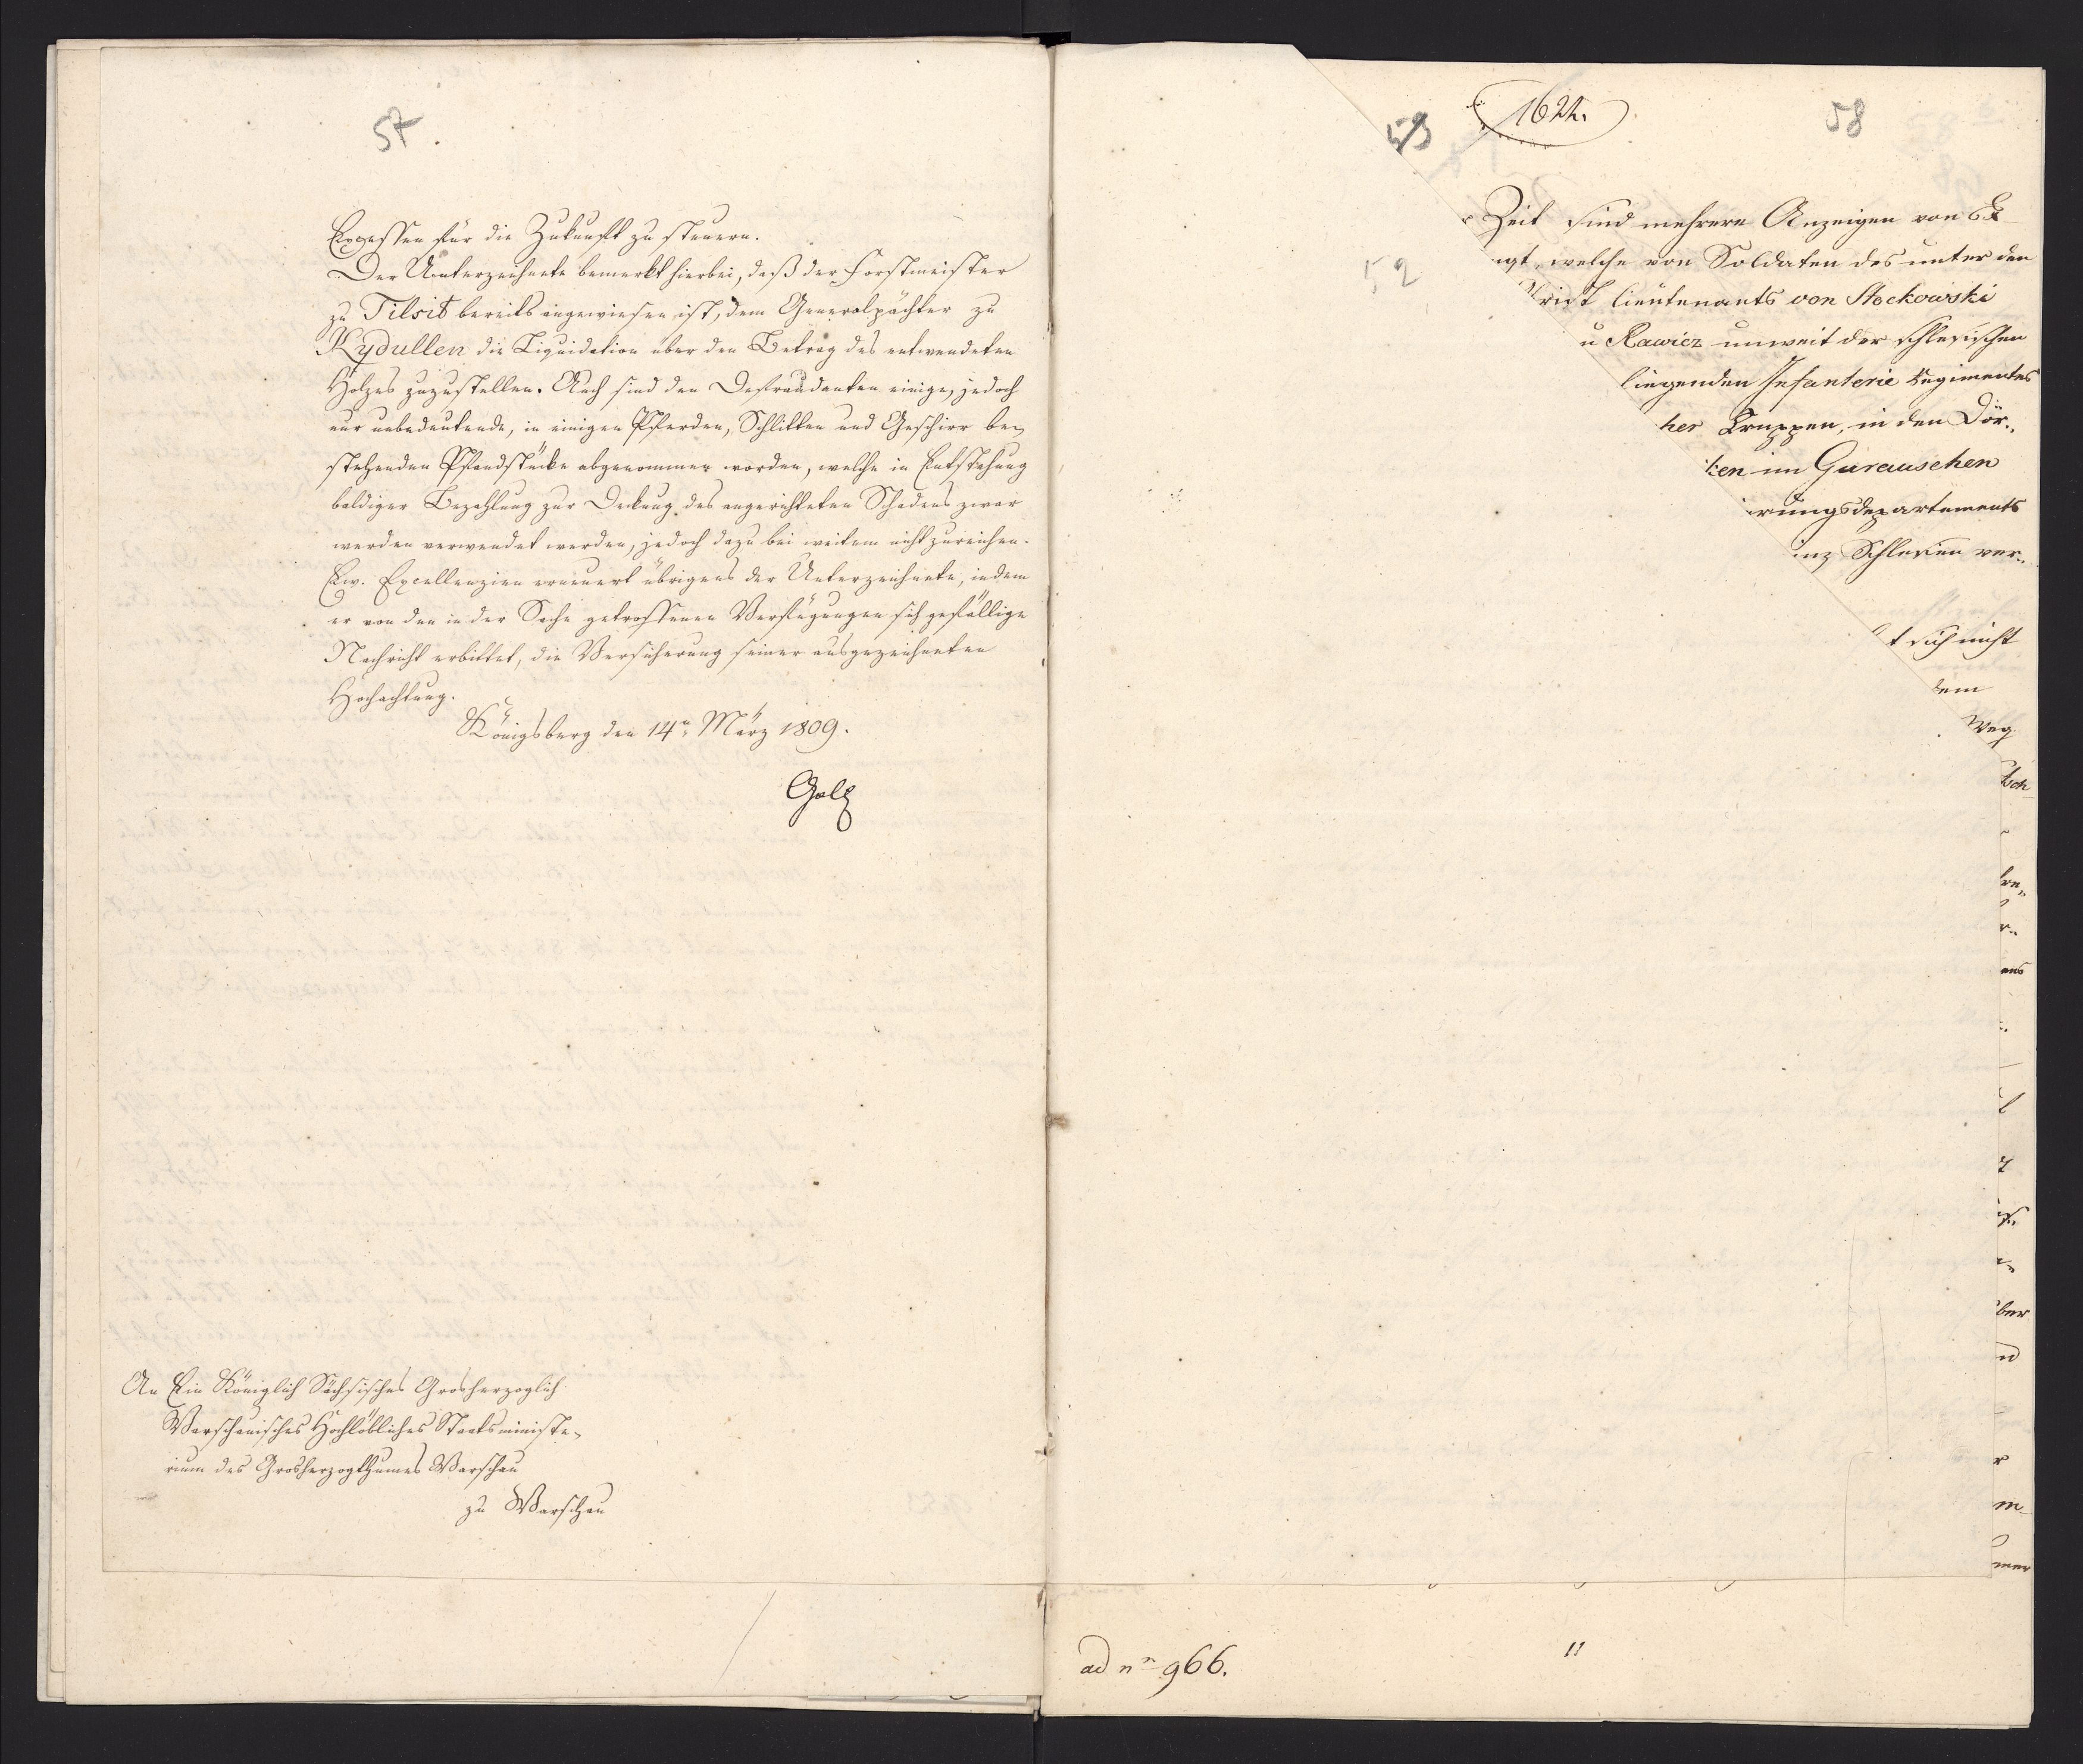 57.
Excessen für die Zukunft zu steuern.
Der Unterzeichnete bemerkt hierbei, daß der Forstmeister
zu Tilsit bereits angewiesen ist, dem Generalpächter zu
Kydullen die Liquidation über den Betrag des entwendeten
Holzes zuzustellen. Auch sind den Defraudanten einige, jedoch
nur unbedeutende, in einigen Pferden, Schlitten und Geschirr be-
stehenden Pfandstücke abgenommen worden, welche in Entstehung
baldiger Bezahlung zur Deckung des angerichteten Schadens zwar
werden verwendet werden, jedoch dazu bei weitem nicht zureichen.
Ew. Excellenzien erneuert übrigens der Unterzeichnete, indem
er von den in der Sache getroffenen Verfügungen sich gefällige
Nachricht erbittet, die Versicherung seiner ausgezeichneten
Hochachtung.
Königsberg den 14n März 1809.
Goltz
An Ein Königlich Sächsisches Grosherzoglich
Warschauisches Hochlöbliches Staatsministe-
rium des Grosherzogthumes Warschau
zu Warschau
58
52
Zeit sind mehrere Anzeigen von Ex
igt, welche von Soldaten des unter den
lieutenants von Stockowski
u Rawicz unweit der schlesischen
liegenden Infanterie Regimentes
her Truppen, in den Dör-
ken im Gurauschen
rungsdepartements
inz Schlesien ver-
t sich nicht
dem
Weg
ber
ad nr 966.
11